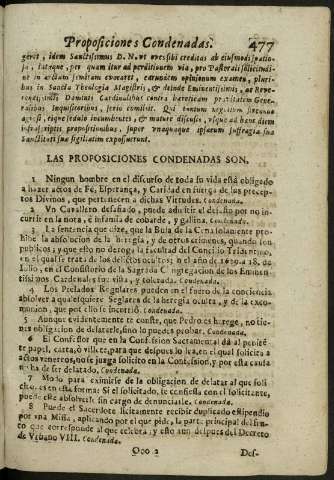 Proposiciones Condenadas. 477
gerit, idem Sanctissimus D. N. ut ovesibi creditas ab ejusmodi
in arctum semitam evocaret, earumdem opinionum examen, pluri-
bus in Sacra Theologia Magistris, & deinde Eminentissimis, ac Reve-
rendissimis Dominis Cardinalibus contra hæreticam pravitatem Gene-
ralibus Inquisitoribus, serio commisit. Qui tantum negotium strenue
agressi, eique sedulo incumbentes, & mature discusso, usque ad hunc diem
infrascriptis propositionibus, super unaquaque ipsarum suffragia sua
Sanctitati sua sigillatim exposuerunt.
LAS PROPOSICIONES CONDENADAS SON,
1 Ningun hombre en el discurso de toda su vida està obligado
à hazer actos de Fè, Esperança, y Caridad en fuerça de los precep-
tos Divinos, que pertenecen à dichas Virtudes. Condenada.
2 Vn Cavallero desafiado, puede admitir el desafio por no in-
currir en la nota, è infamia de cobarde, y gallina. Condenada.
3 La sentencia que dize, que la Bula de la Cena solamente pro-
hibe la absolucion de la heregia, y de otros crimines, quando son
publicos, y que esto no deroga la facultad del Concilio Tridentino,
en el qual se trata de los delictos ocultos; en el año de 1629. à 18. de
Iulio, en el Consistorio de la Sagrada Congregacion de los Eminen-
tissimos Cardenales fue vista, y tolerada. Condenada.
4 Los Prelados Regulares pueden en el fuero de la conciencia
absolver à qualesquiere Seglares de la heregia oculta, y de la exco-
munion, que por ella se incurriò. Condenada.
5 Aunque evidentemente te conste, que Pedro es herege, no tie-
nes obligacion de delatarle, sino lo puedes probar. Condenada.
6 El Confessor que en la Confession Sacramental dà al peniten-
te papel, carta, ò villete, para que despues lo lea, en el qual solicita à
actos venereos, no se juzga solicito en la Confession, y por esta causa
no ha de ser delatado, Condenada.
7 Modo para eximirse de la obligacion de delatar al que soli-
citò, es en esta forma: Si el solicitado, se confiessa con el solicitante,
puede este absolverle sin cargo de denunciarle. Condenada.
8 Puede el Sacerdote licitamente recibir duplicado estipendio
por una Missa, aplicando por el que pide, la parte principal del fru-
cto que corresponde al que celebra; y esto aun despues del Decreto
de Vrbano VIII. Condenada.
Ooo 2 Des-